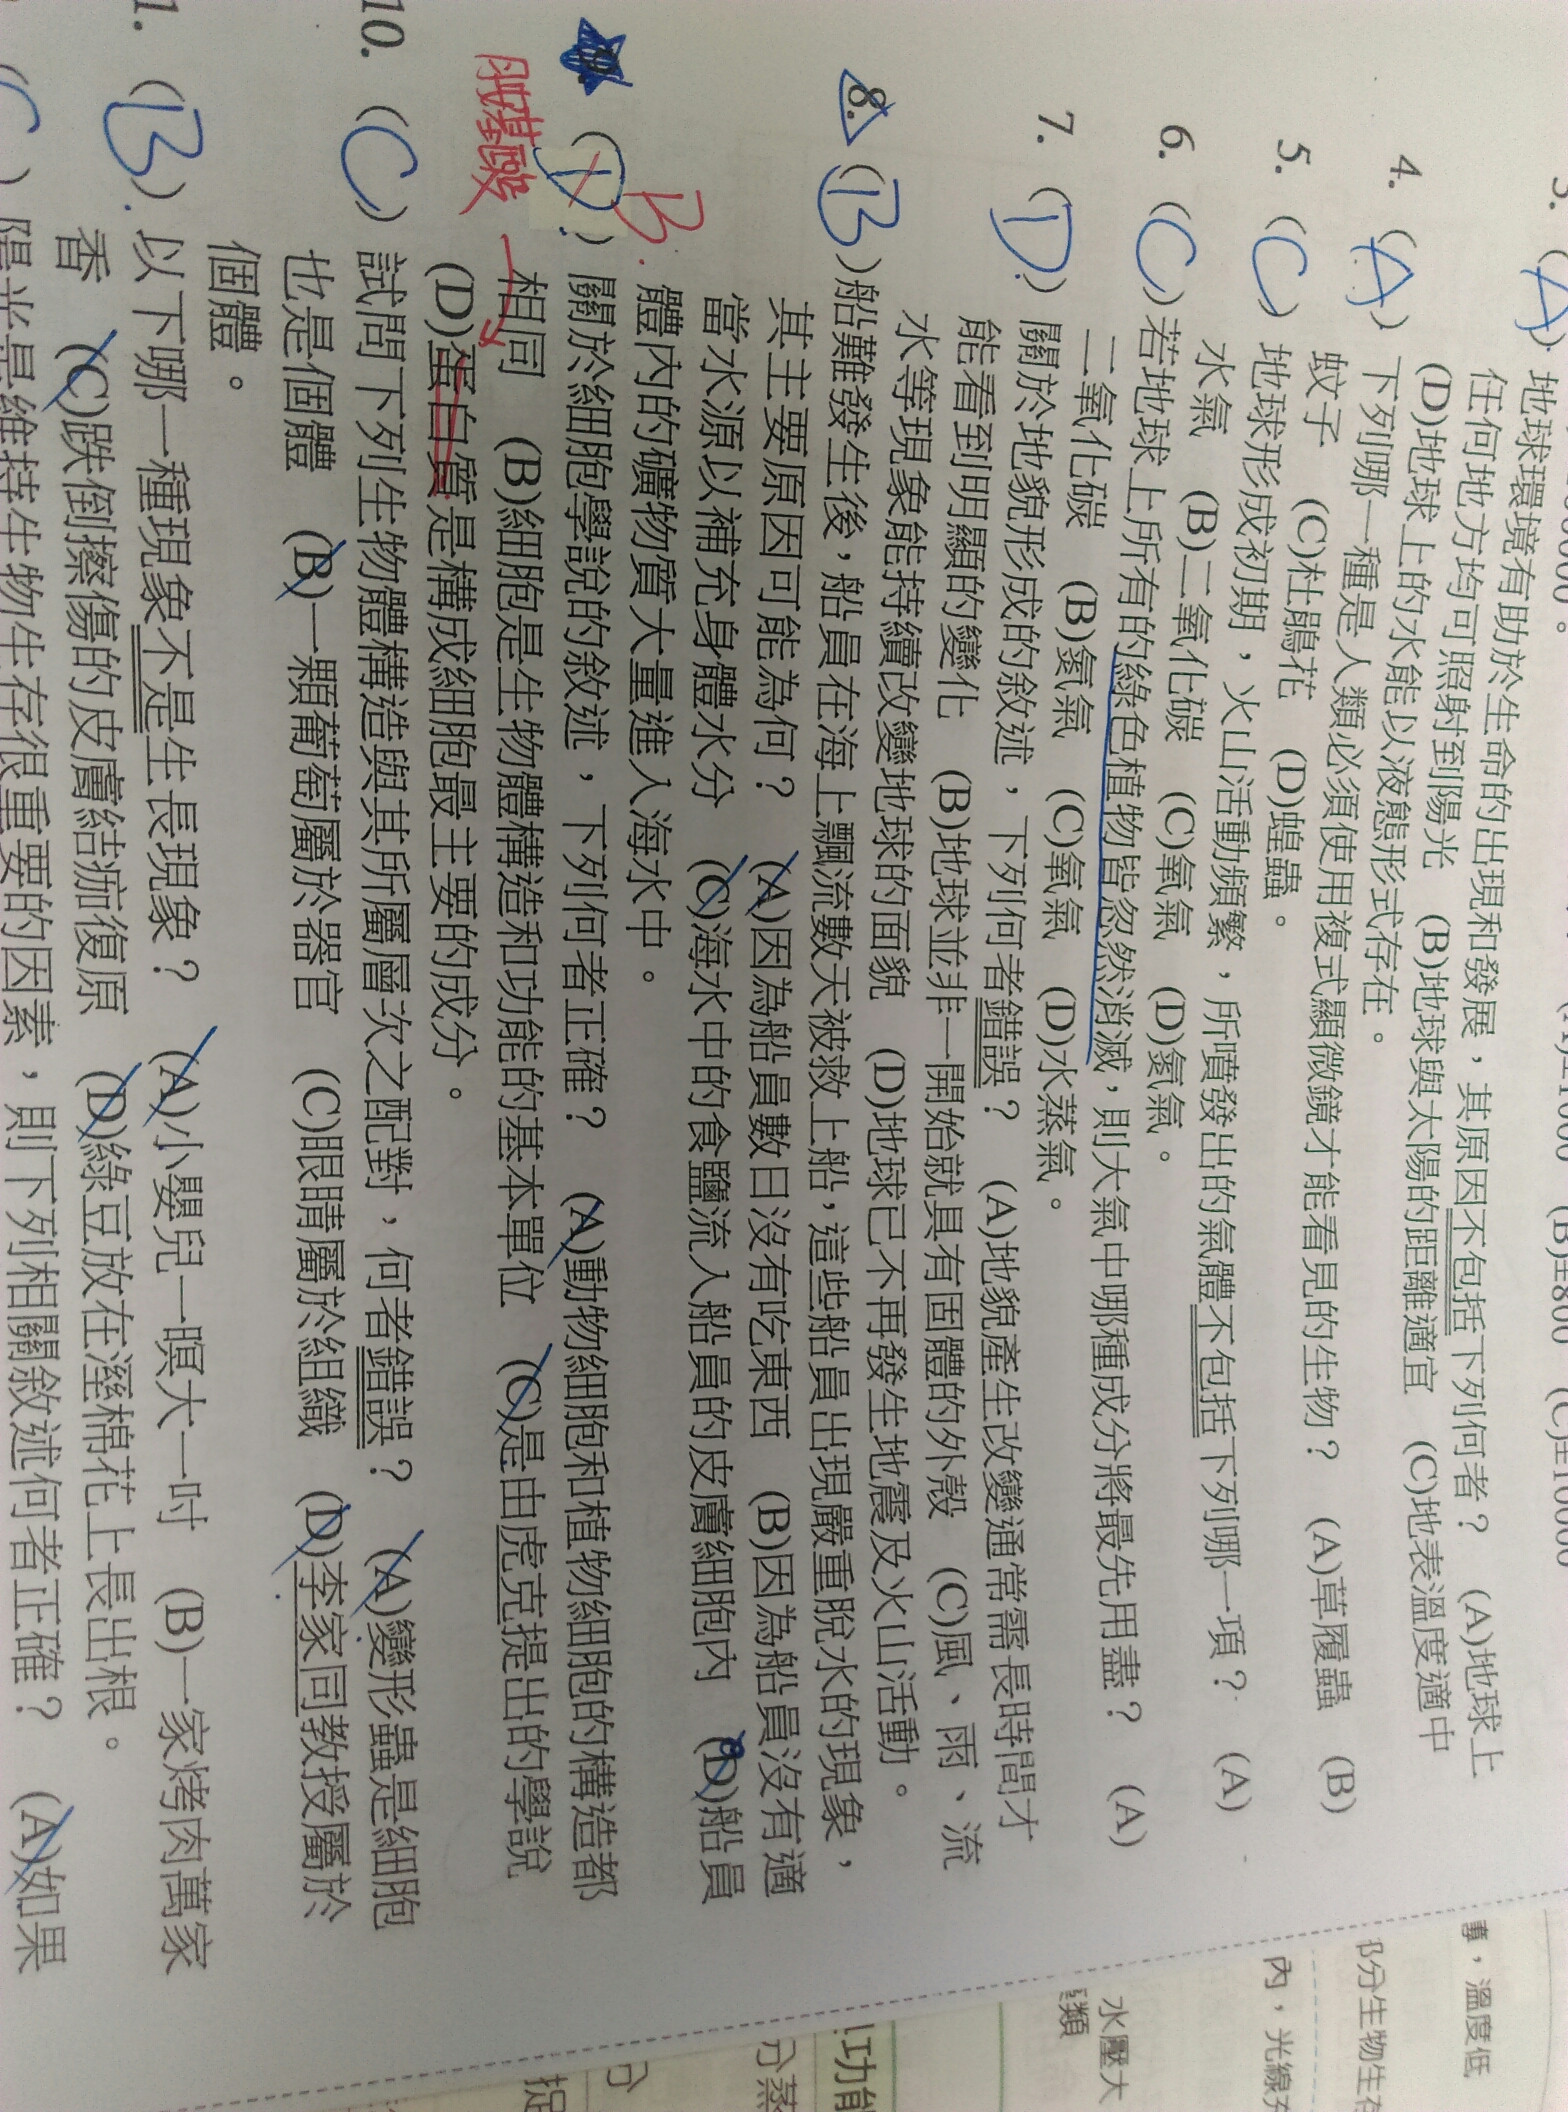 3. (A) 地球環境有助於生命的出現和發展，其原因不包括下列何者？ (A)地球上
任何地方均可照射到陽光 (B)地球與太陽的距離適宜 (C)地表溫度適中
(D)地球上的水能以液態形式存在。
4. (A) 下列哪一種是人類必須使用複式顯微鏡才能看見的生物？ (A)草履蟲 (B)
蚊子 (C)杜鵑花 (D)蝗蟲。
5. (C) 地球形成初期，火山活動頻繁，所噴發出的氣體不包括下列哪一項？ (A)
水氣 (B)二氧化碳 (C)氧氣 (D)氮氣。
6. (C) 若地球上所有的綠色植物皆忽然消滅，則大氣中哪種成分將最先用盡？ (A)
二氧化碳 (B)氮氣 (C)氧氣 (D)水蒸氣。
7. (D) 關於地貌形成的敘述，下列何者錯誤？ (A)地貌產生改變通常需長時間才
能看到明顯的變化 (B)地球並非一開始就具有固體的外殼 (C)風、雨、流
水等現象能持續改變地球的面貌 (D)地球已不再發生地震及火山活動。
8. (B) 船難發生後，船員在海上飄流數天被救上船，這些船員出現嚴重脫水的現象，
其主要原因可能為何？ (A)因為船員數日沒有吃東西 (B)因為船員沒有適
當水源以補充身體水分 (C)海水中的食鹽流入船員的皮膚細胞內 (D)船員
體內的礦物質大量進入海水中。
B.
(D) 關於細胞學說的敘述，下列何者正確？ (A)動物細胞和植物細胞的構造都
相同 (B)細胞是生物體構造和功能的基本單位 (C)是由虎克提出的學說
胺基酸
(D)蛋白質是構成細胞最主要的成分。
10. (C) 試問下列生物體構造與其所屬層次之配對，何者錯誤？ (A)變形蟲是細胞
也是個體 (B)一顆葡萄屬於器官 (C)眼睛屬於組織 (D)李家同教授屬於
個體。
1. (B) 以下哪一種現象不是生長現象？ (A)小嬰兒一暝大一吋 (B)一家烤肉萬家
香 (C)跌倒擦傷的皮膚結痂復原 (D)綠豆放在溼棉花上長出根。
(C) 陽光是維持生物生存很重要的因素，則下列相關敘述何者正確？ (A)如果
事，溫度低
部分生物生存
內，光線充
水壓大
類
功能
分蒸
分
捉